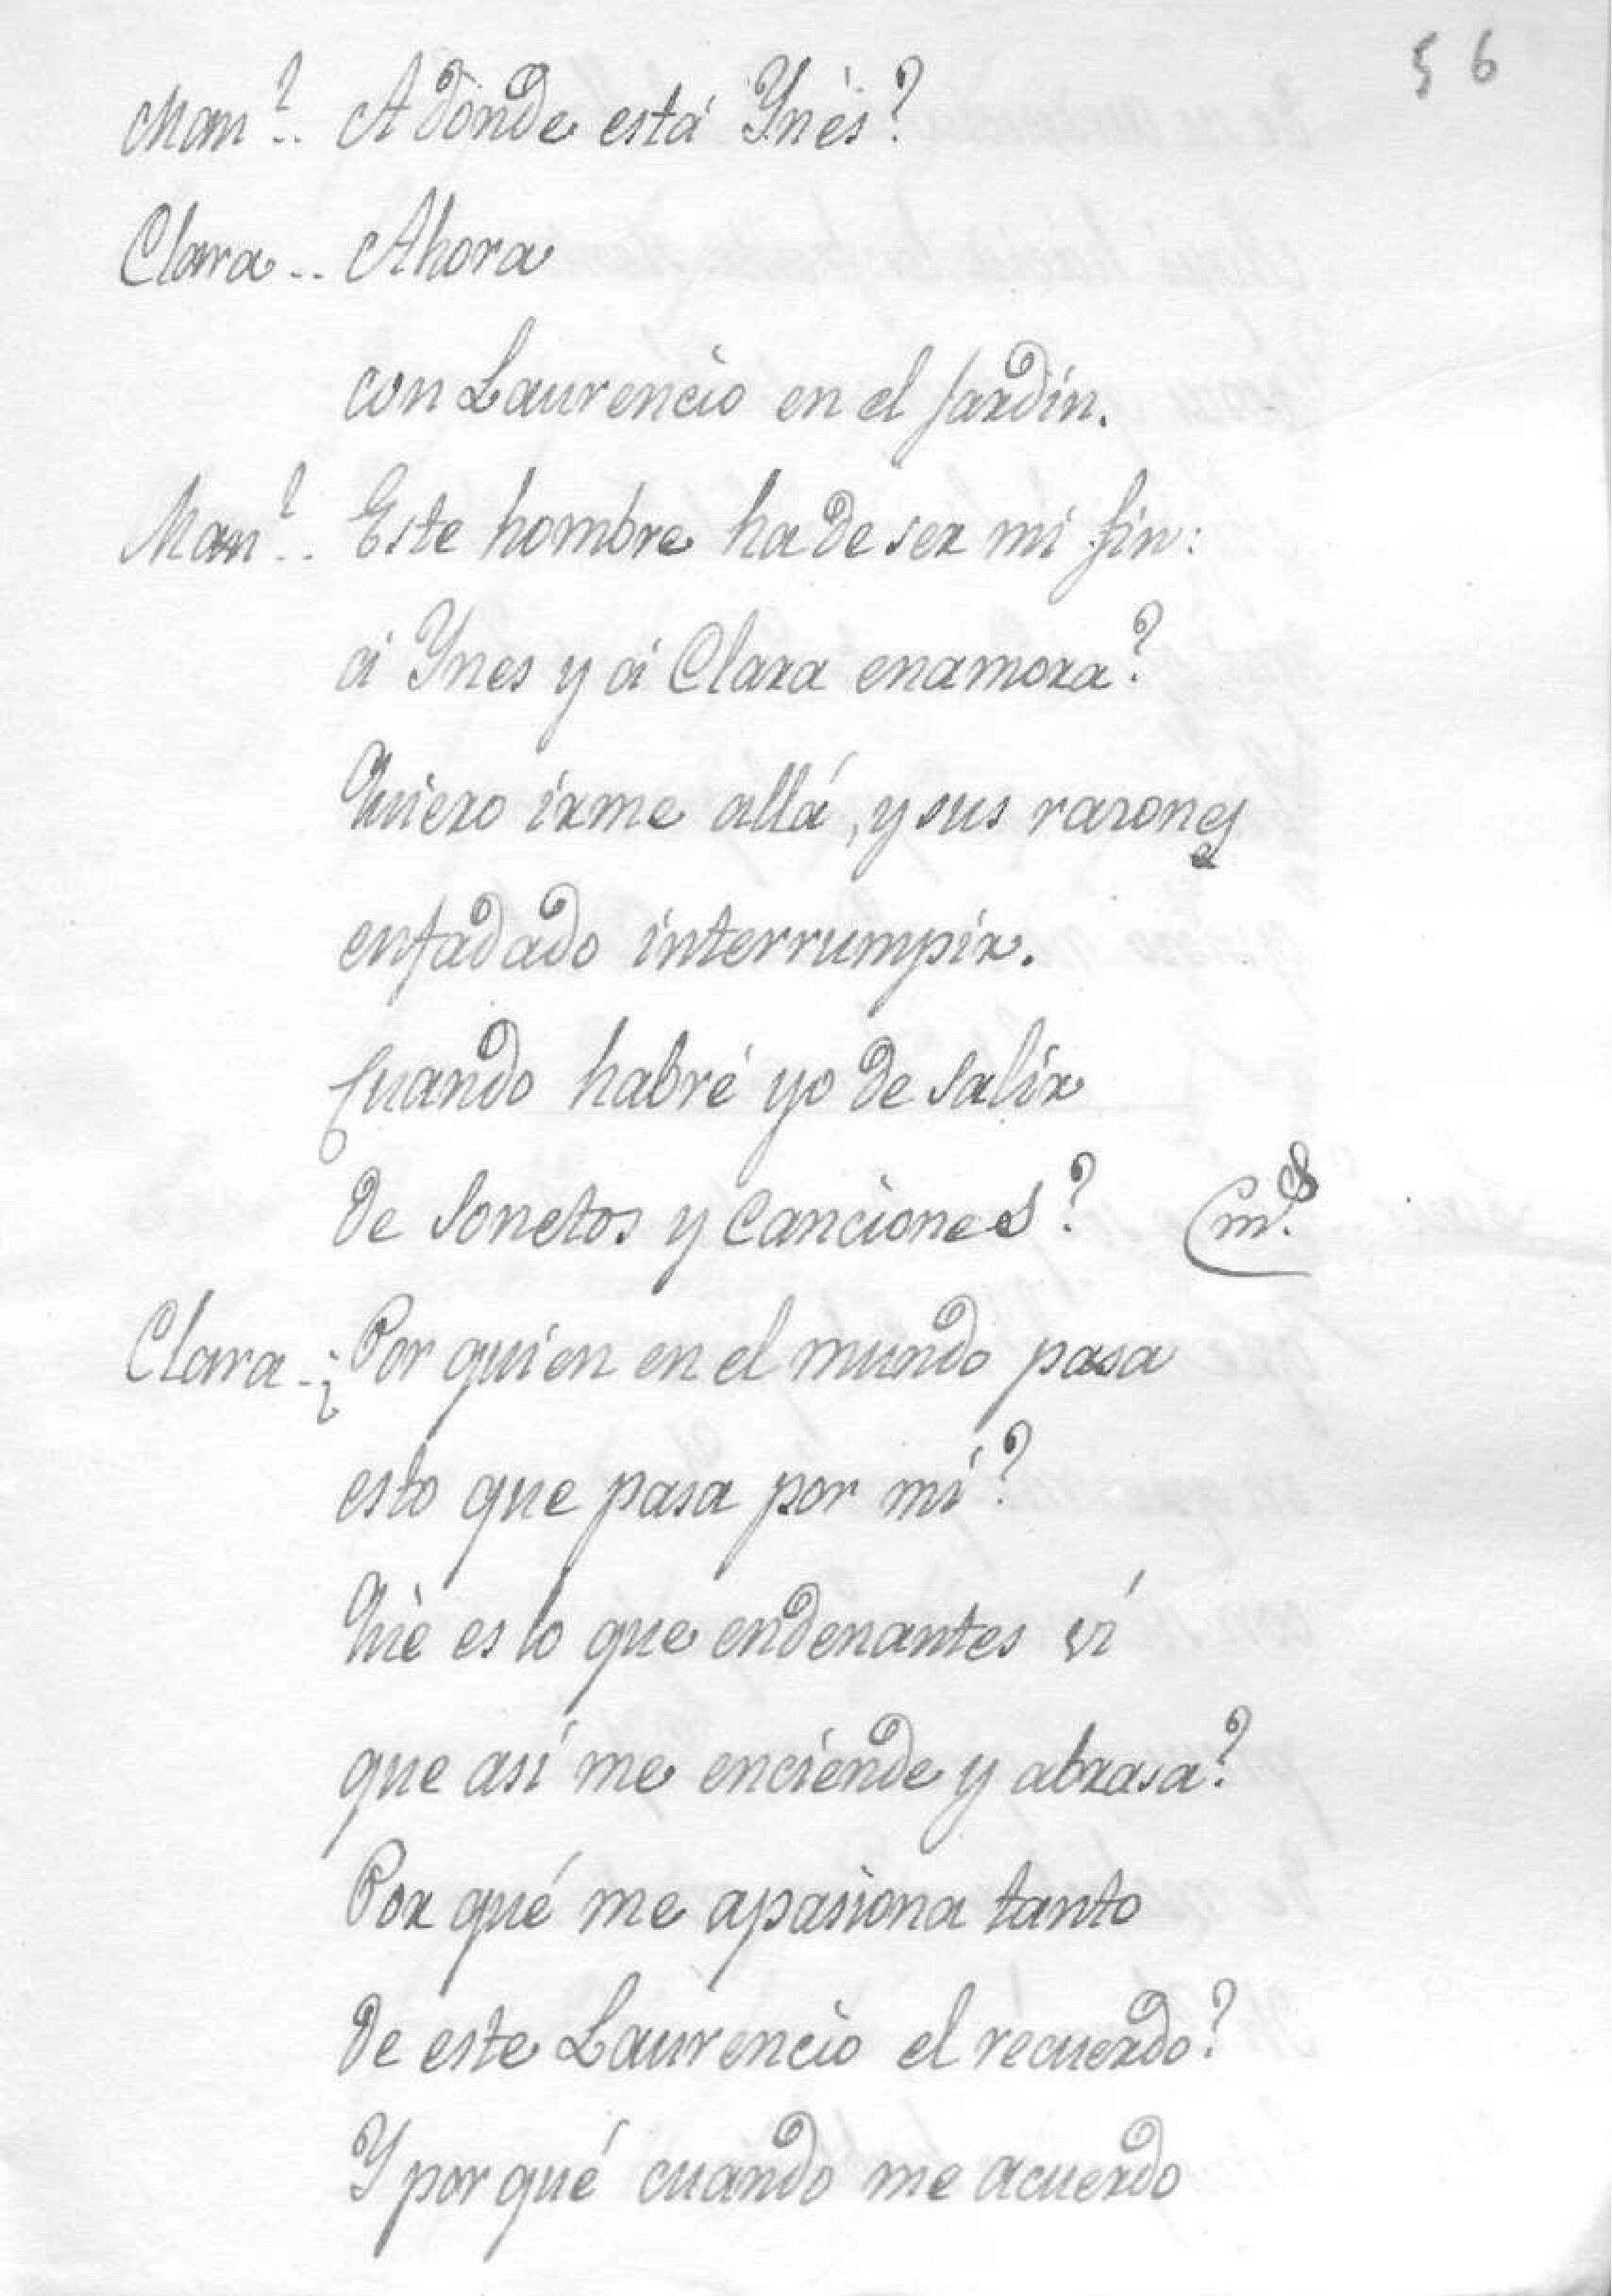 56
Man.l.. A donde está Ynés?
Clara.. Ahora
con Laurencio en el jardin.
Man.l.. Este hombre ha de ser mi fin:
á Ynes y á Clara enamora?
Quiero irme allá, y sus razones
enfadado interrumpir.
Cuando habré yo de salir
de sonetos y canciones?
Clara.. ¿Por quien en el mundo pasa
esto que pasa por mí?
Qué es lo que endenantes ví
que así me enciende y abrasa?
Por qué me apasiona tanto
de este Laurencio el recuerdo?
Y por qué cuando me acuerdo